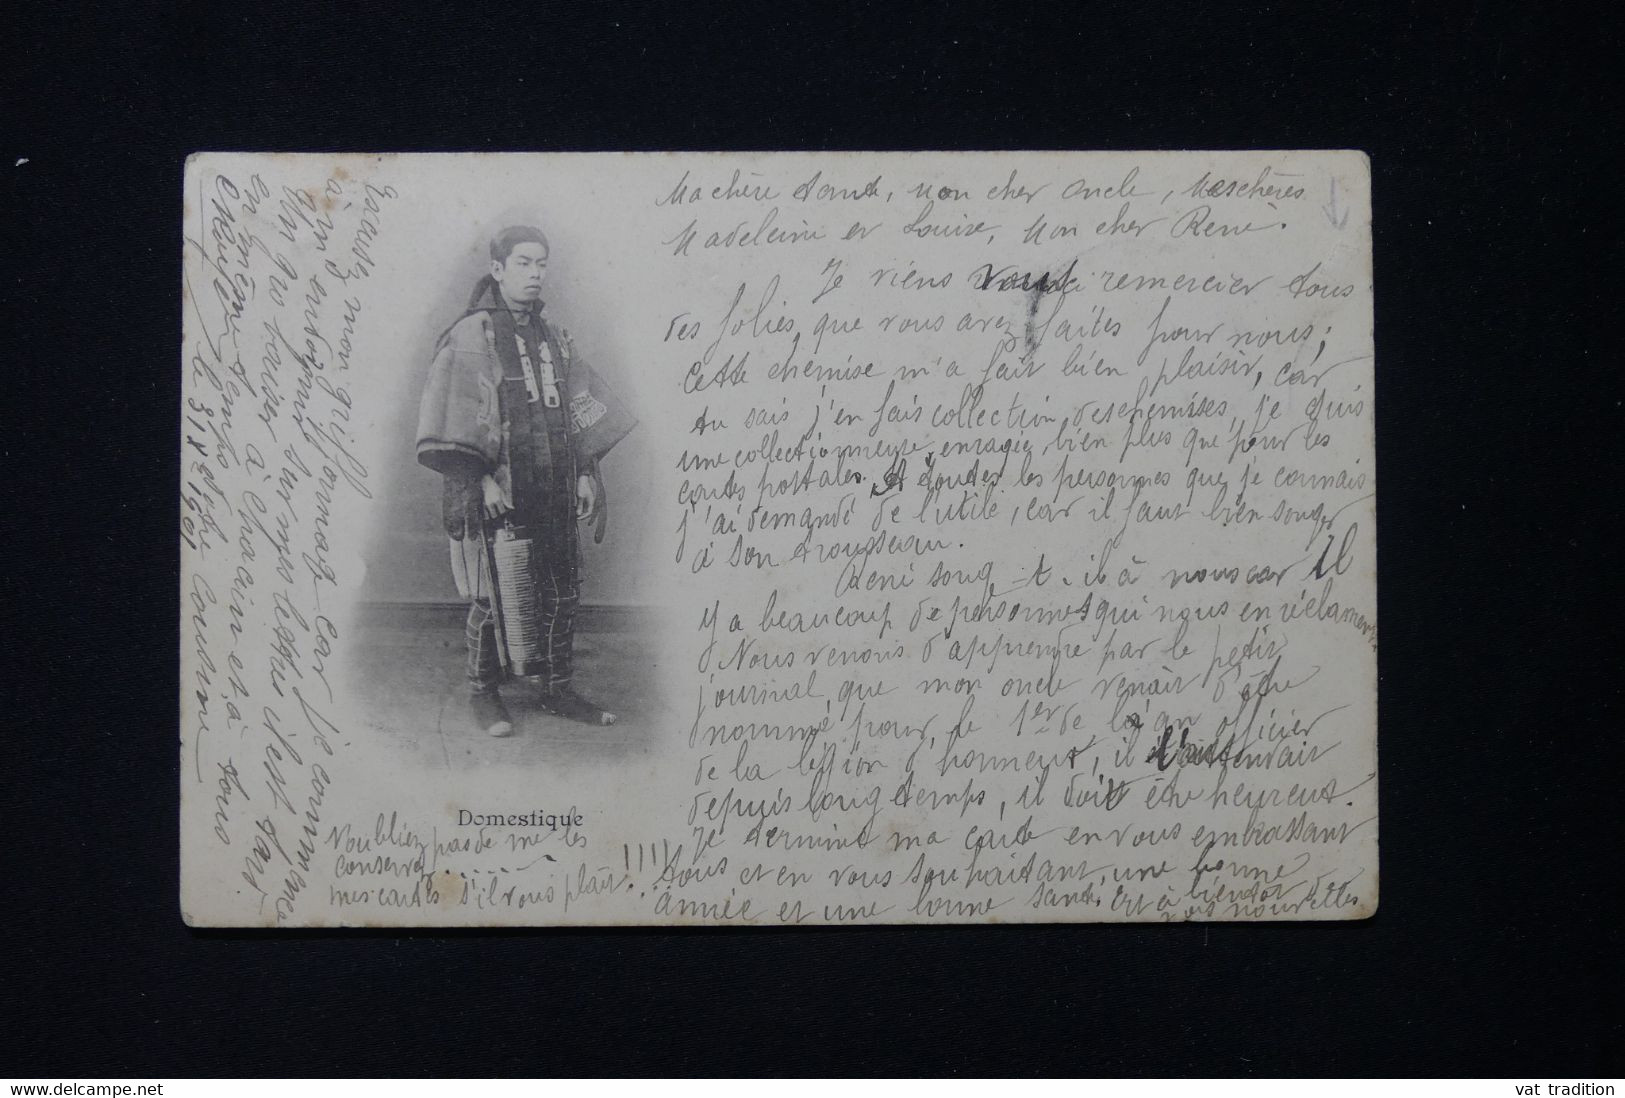 Ma chère tante, mon cher oncle, Mes chères
Madeleine et Louise, Mon cher René.
Je viens vous remercier tous
des folies que vous avez faites pour nous;
cette chemise m'a fait bien plaisir, car
tu sais j'en fais collection des chemises, je suis
une collectionneuse enragée, bien plus que pour les
cartes postales. A toutes les personnes que je connais
j'ai demandé de l'utile, car il faut bien songer
à son trousseau.
René song-t-il à nous car il
y a beaucoup de personnes qui nous en réclament
Nous venons d'apprendre par le petit
journal que mon oncle venait d'être
nommé pour le 1er de l'an officier
de la légion d'honneur, il l'attendait
depuis longtemps, il doit être heureux.
Je termine ma carte en vous embrassant
tous et en vous souhaitant une bonne
année et une bonne santé. Et à bientôt de
vos nouvelles
Domestique
N'oubliez pas de me les
conserver
mes cartes s'il vous plaît!!!!
Excusez mon griffonnage car je commence
à m'y
Un gros baiser sur
en même temps à chacun et à tous
le 31 Xbre 1901
vat tradition
delcampe.net